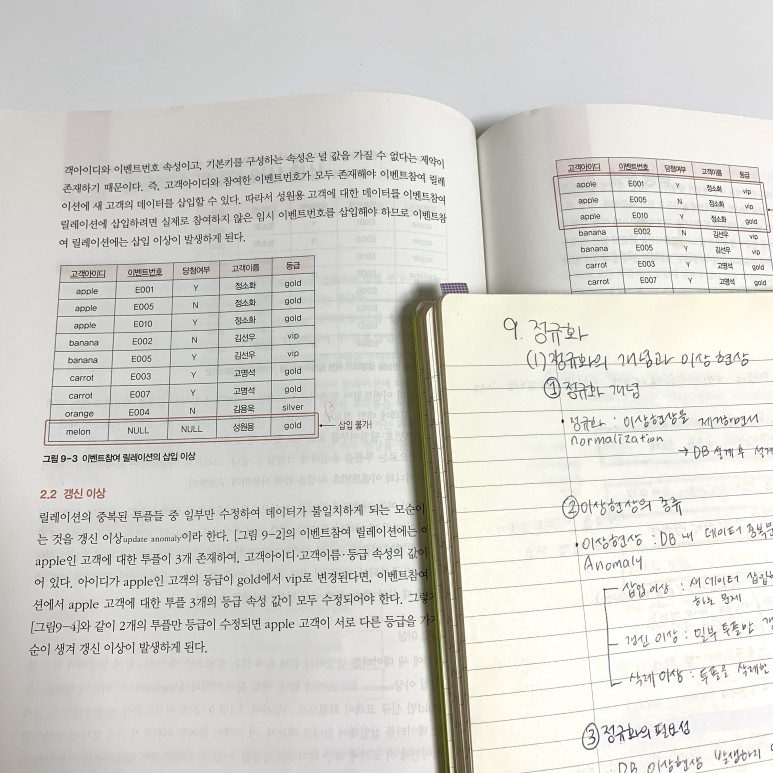 객아이디와 이벤트번호 속성이고, 기본키를 구성하는 속성은 널 값을 가질 수 없다는 제약이
존재하기 때문이다. 즉, 고객아이디와 참여한 이벤트번호가 모두 존재해야 이벤트참여 릴레
이션에 새 고객의 데이터를 삽입할 수 있다. 따라서 성원용 고객에 대한 데이터를 이벤트참여
릴레이션에 삽입하려면 실제로 참여하지 않은 임시 이벤트번호를 삽입해야 하므로 이벤트참
여 릴레이션에는 삽입 이상이 발생하게 된다.
고객아이디 이벤트번호 당첨여부 고객이름 등급
apple E001 Y 정소화 gold
apple E005 N 정소화 gold
apple E010 Y 정소화 gold
banana E002 N 김선우 vip
banana E005 Y 김선우 vip
carrot E003 Y 고명석 gold
carrot E007 Y 고명석 gold
orange E004 N 김용욱 silver
melon NULL NULL 성원용 gold 삽입 불가!
그림 9-3 이벤트참여 릴레이션의 삽입 이상
2.2 갱신 이상
릴레이션의 중복된 투플들 중 일부만 수정하여 데이터가 불일치하게 되는 모순이
는 것을 갱신 이상update anomaly이라 한다. [그림 9-2]의 이벤트참여 릴레이션에는
apple인 고객에 대한 투플이 3개 존재하여, 고객아이디·고객이름·등급 속성의 값이
어 있다. 아이디가 apple인 고객의 등급이 gold에서 vip로 변경된다면, 이벤트참여
션에서 apple 고객에 대한 투플 3개의 등급 속성 값이 모두 수정되어야 한다.
[그림9-4]와 같이 2개의 투플만 등급이 수정되면 apple 고객이 서로 다른 등급을
순이 생겨 갱신 이상이 발생하게 된다.
고객아이디 이벤트번호 당첨여부 고객이름 등급
apple E001 Y 정소화 vip
apple E005 N 정소화 vip
apple E010 Y 정소화 gold
banana E002 N 김선우 vip
banana E005 Y 김선우 vip
carrot E003 Y 고명석 gold
carrot E007 Y 고명석 gold
9. 정규화
(1) 정규화의 개념과 이상현상
① 정규화 개념
• 정규화 : 이상현상을 제거하면서
normalization
→ DB 설계 후
② 이상현상의 종류
• 이상현상 : DB 내 데이터
Anomaly
삽입 이상 : 새 데이터
하는 문제
갱신 이상 : 일부 투플만
삭제 이상 : 투플을
③ 정규화의 필요성
• DB 이상현상 발생하지